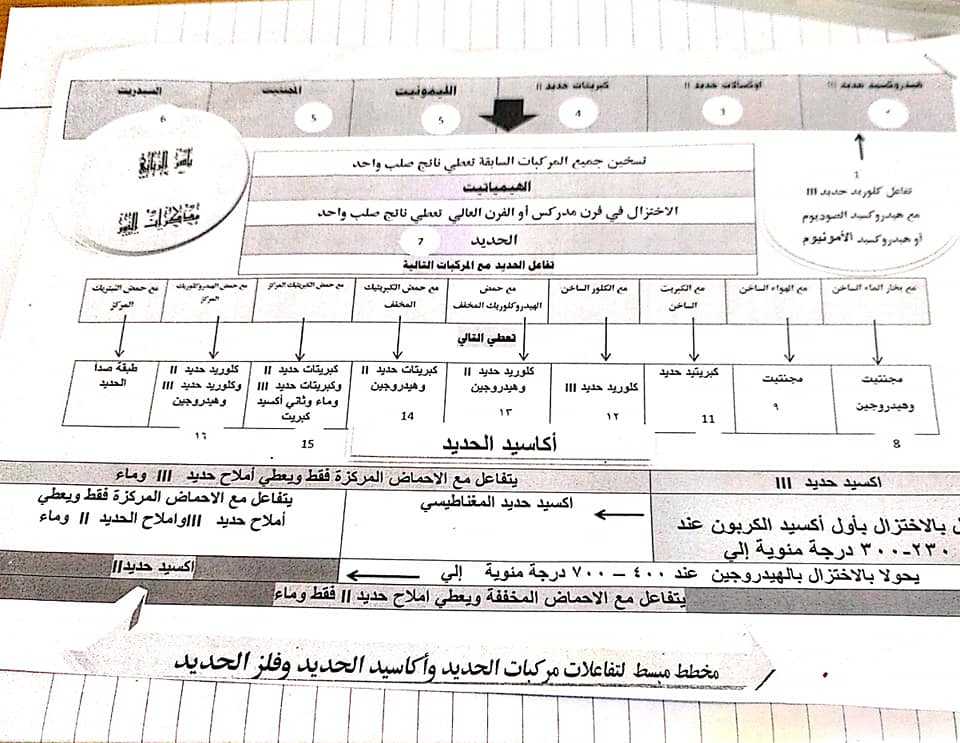 هيدروكسيد حديد III
اوكسالات حديد II
3
كبريتات حديد II
4
الليمونيت
5
المجنتيت
5
السيدريت
6
1
تفاعل كلوريد حديد III
مع هيدروكسيد الصوديوم
أو هيدروكسيد الأمونيوم
ياسر
تسخين جميع المركبات السابقة تعطي ناتج صلب واحد
الهيماتيت
الاختزال في فرن مدركس أو الفرن العالي تعطي ناتج صلب واحد
الحديد
7
تفاعل الحديد مع المركبات التالية
مع بخار الماء الساخن
مع الهواء الساخن
مع الكبريت
الساخن
مع الكلور الساخن
مع حمض
الهيدروكلوريك المخفف
مع حمض الكبريتيك
المخفف
مع حمض الكبريتيك المركز
مع حمض الهيدروكلوريك
المركز
مع حمض النيتريك
المركز
تعطي التالي
مجنتيت
وهيدروجين
8
مجنتيت
٩
كبريتيد حديد
11
كلوريد حديد III
١٢
كلوريد حديد II
وهيدروجين
١٣
كبريتات حديد II
وهيدروجين
14
كبريتات حديد II
وكبريتات حديد III
وماء وثاني أكسيد
كبريت
15
كلوريد حديد II
وكلوريد حديد III
وهيدروجين
١٦
طبقة صدأ
الحديد
أكاسيد الحديد
اكسيد حديد III
يتفاعل مع الاحماض المركزة فقط ويعطي أملاح حديد III وماء
بالاختزال بأول أكسيد الكربون عند
٢٣٠-٣٠٠ درجة مئوية إلي
اكسيد حديد المغناطيسي
يتفاعل مع الاحماض المركزة فقط ويعطي
أملاح حديد III واملاح الحديد II وماء
يحولا بالاختزال بالهيدروجين عند ٤٠٠ – ٧٠٠ درجة مئوية إلي
اكسيد حديد II
يتفاعل مع الاحماض المخففة ويعطي املاح حديد II فقط وماء
مخطط مبسط لتفاعلات مركبات الحديد وأكاسيد الحديد وفلز الحديد